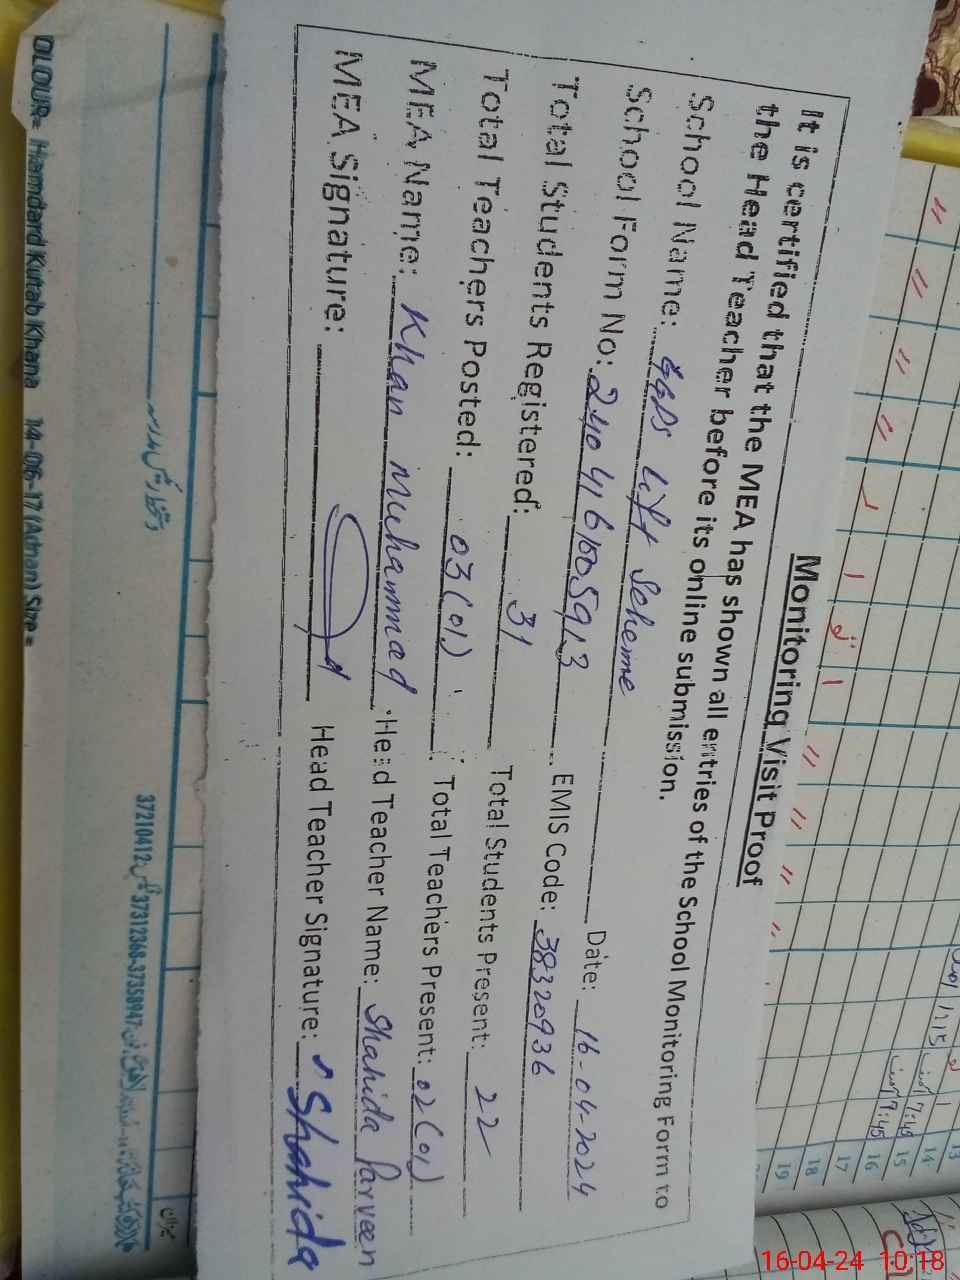 Monitoring Visit Proof
It is certified that the MEA has shown all entries of the School Monitoring Form to
the Head Teacher before its online submission.
School Name: GGPS Lift Scheme Date: 16-04-2024
School Form No: 2404161005913 EMIS Code: 38320936
Total Students Registered: 31 Total Students Present: 22
Total Teachers Posted: 03(01) Total Teachers Present: 02(01)
MEA Name: Khan Muhammad Head Teacher Name: Shahida Parveen
MEA Signature: Head Teacher Signature: Shahida
13
14
15
16
17
18
19
1215
7:45
7:45
37210412 37312368-37358947
OLOUR= Hamdard Kutab Khana 14-06-17 (Adnan) Size=
16-04-24 10:18